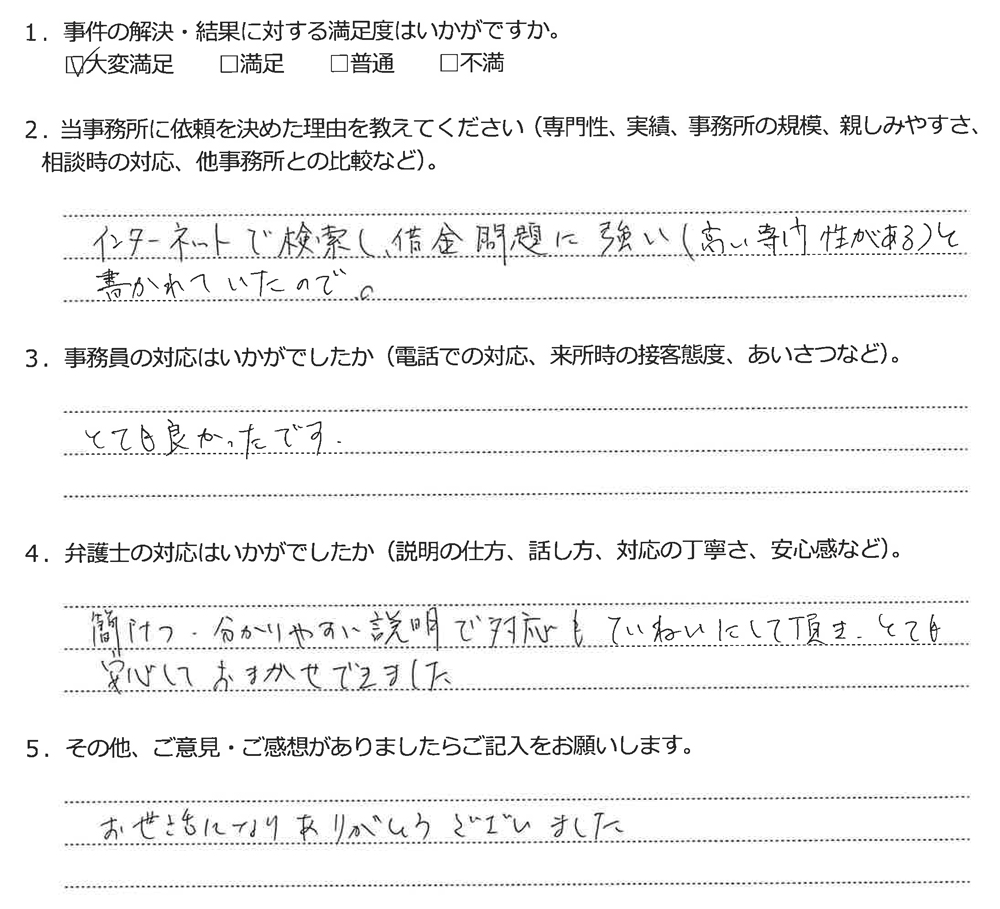 1. 事件の解決・結果に対する満足度はいかがですか。
☑大変満足 □満足 □普通 □不満
2. 当事務所に依頼を決めた理由を教えてください（専門性、実績、事務所の規模、親しみやすさ、
相談時の対応、他事務所との比較など）。
インターネットで検索し、借金問題に強い(高い専門性がある)と
書かれていたので。
3. 事務員の対応はいかがでしたか（電話での対応、来所時の接客態度、あいさつなど）。
とても良かったです.
4. 弁護士の対応はいかがでしたか（説明の仕方、話し方、対応の丁寧さ、安心感など）。
分かりやすい説明で対応もていねいにして頂き、とても
安心しておまかせできました
5. その他、ご意見・ご感想がありましたらご記入をお願いします。
お世話になりありがとうございました